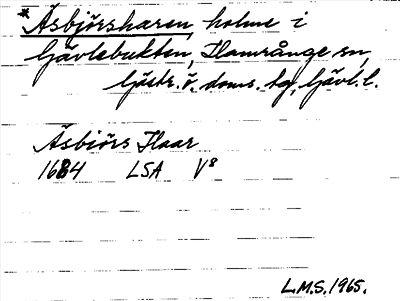 *Äsbjörsharen, holme i
Gävlebukten, Hamrånge sn,
Gästr. ö. doms. tg, Gävl. l.
Äsbiörs Haar
1684 LSA V8
L.M.S. 1965.